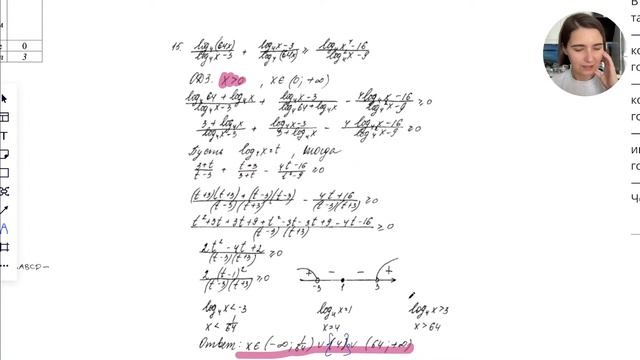 е 0
п 3
15. log₄(64x)/(log₄x-3) + (log₄x-3)/log₄(64x) ≥ (log₄x⁴-16)/(log₄²x-9)
ОДЗ. x>0, x∈(0;+∞)
(log₄64+log₄x)/(log₄x-3) + (log₄x-3)/(log₄64+log₄x) - (4log₄x-16)/(log₄²x-9) ≥0
(3+log₄x)/(log₄x-3) + (log₄x-3)/(3+log₄x) - (4log₄x-16)/(log₄²x-9) ≥0
Пусть log₄x=t, тогда
(3+t)/(t-3) + (t-3)/(3+t) - (4t-16)/(t²-9) ≥0
((t+3)(t+3)+(t-3)(t-3))/((t-3)(t+3)) - (4t+16)/((t-3)(t+3)) ≥0
(t²+3t+3t+9+t²-3t-3t+9-4t-16)/((t-3)(t+3)) ≥0
(2t²-4t+2)/((t-3)(t+3)) ≥0
2(t-1)²/((t-3)(t+3)) ≥0
+ - - +
-3 1 3
log₄x<-3 log₄x=1 log₄x>3
x<1/64 x=4 x>64
Ответ: x∈(-∞; 1/64)∪{4}∪(64;+∞)
ABCD –
В
та
—
ко
го
—
ко
го
—
ин
го
—
Ч
A